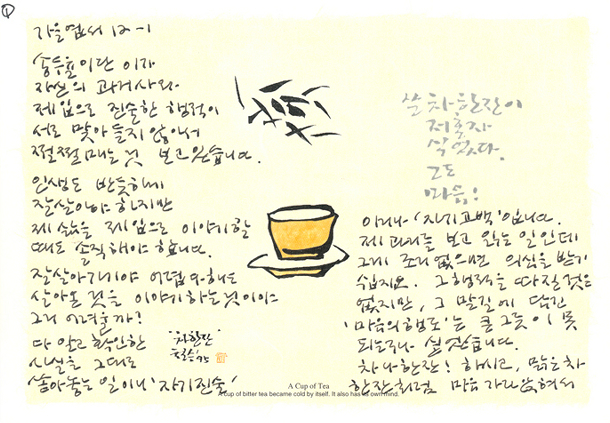 ①
가을엽서 12-1
송두율이란 이가
자신의 과거사와
제 입으로 진술한 행적이
서로 맞아들지 않아서
쩔쩔매는 것 보고 있습니다.
인생도 반듯하게
잘 살아야 하지만
제 삶을 제 입으로 이야기할
때도 솔직해야 합니다.
잘 살아가기야 어렵다 해도
살아온 것을 이야기하는 것이야
그리 어려울까?
다 알고 확인한
사실을 그대로
쏟아놓는 일이나 '자기진술'
'차한잔'
철수 '95
쓴 차 한 잔이
저 혼자
식었다.
그도
마음!
이거나 '자기고백'입니다.
제 과거를 보고 읽는 일인데
그게 조리 없으면 의심을 받기
쉽지요. 그 행적을 따질 것은
없지만, 그 말길에 담긴
'마음의 행로'는 큰 그릇이 못
되는구나 싶습니다.
차나 한잔! 하시고, 맑은 차
한 잔처럼 마음 가라앉혀서
A Cup of Tea
A cup of bitter tea became cold by itself. It also has its own mind.